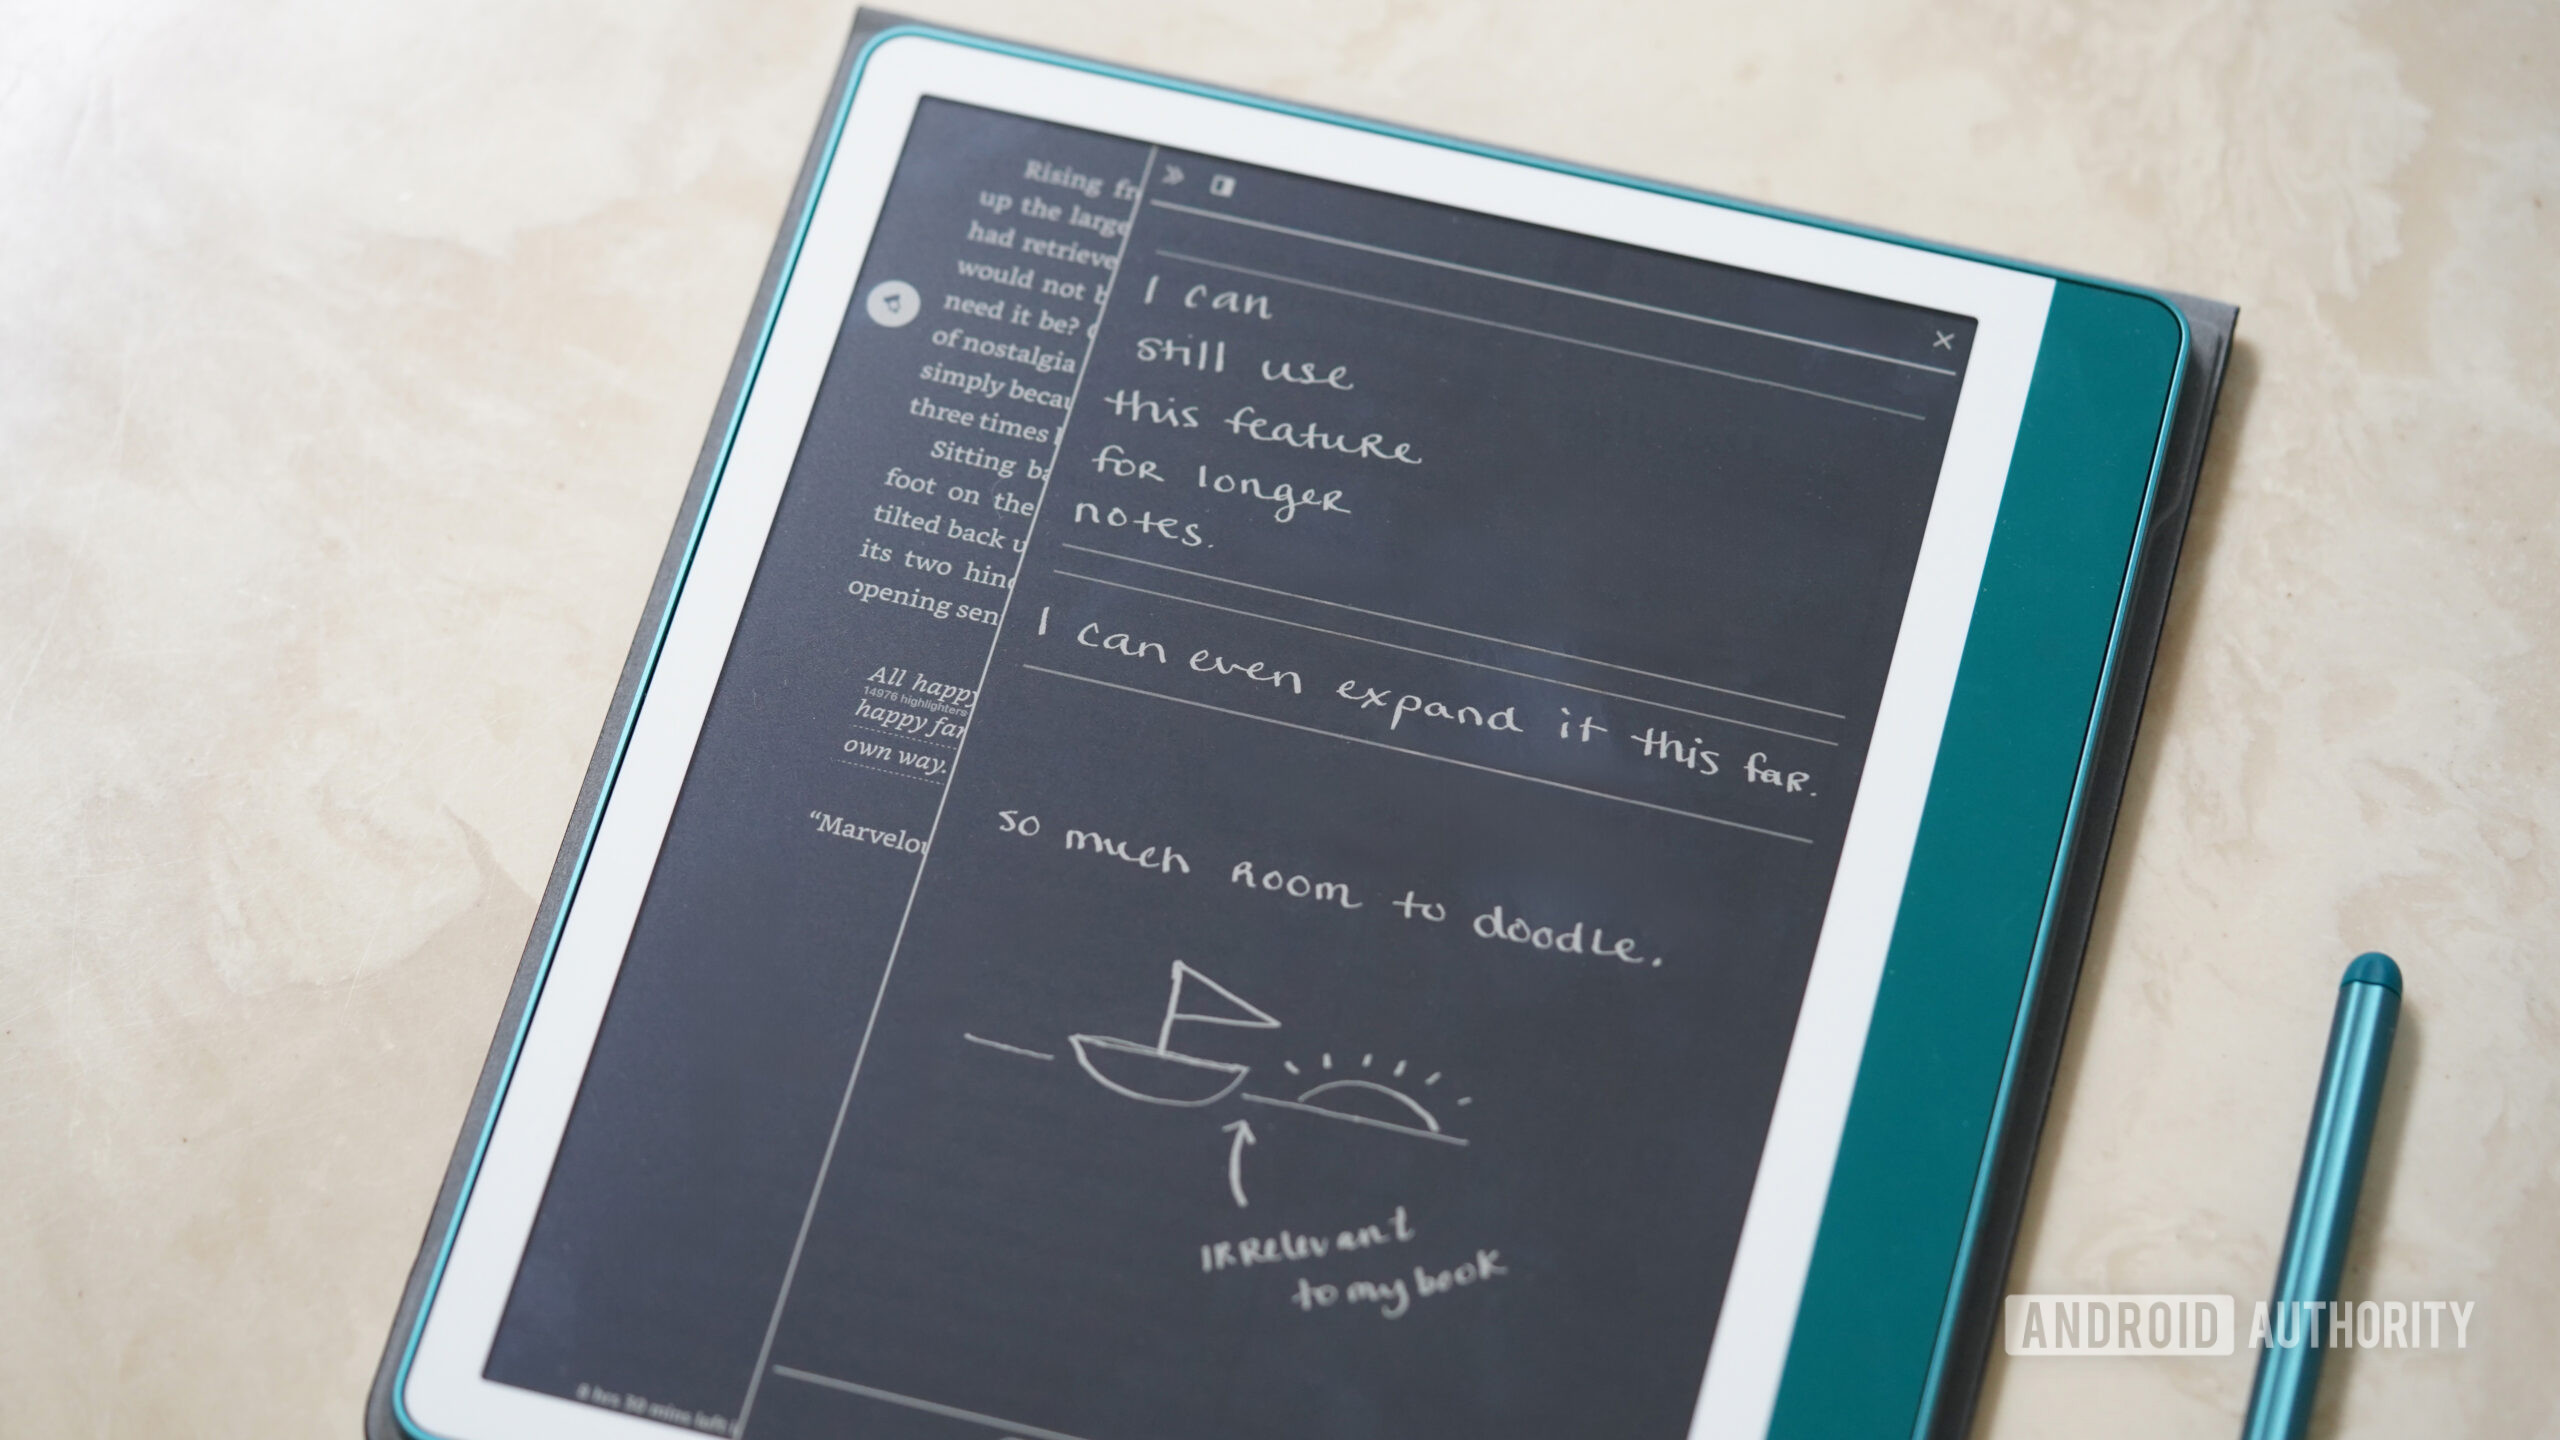 Rising
up the large
had retrieve
would not
need it be?
of nostalgia
simply
three times
Sitting
foot on the
tilted back
its two
opening
All happy
14976 highlighters
happy
own way.
I can
still use
this feature
for longer
notes.
I can even expand it this far.
so much room to doodle.
Irrelevant
to my book
ANDROID AUTHORITY